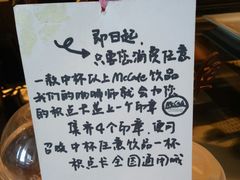 即日起,
只要您消费任意
一款中杯以上McCafe饮品
我们的咖啡师就会为您
的积点卡盖上一个印章
McCafe
集齐4个印章,便可
召唤中杯任意饮品一杯
积点卡全国通用哦